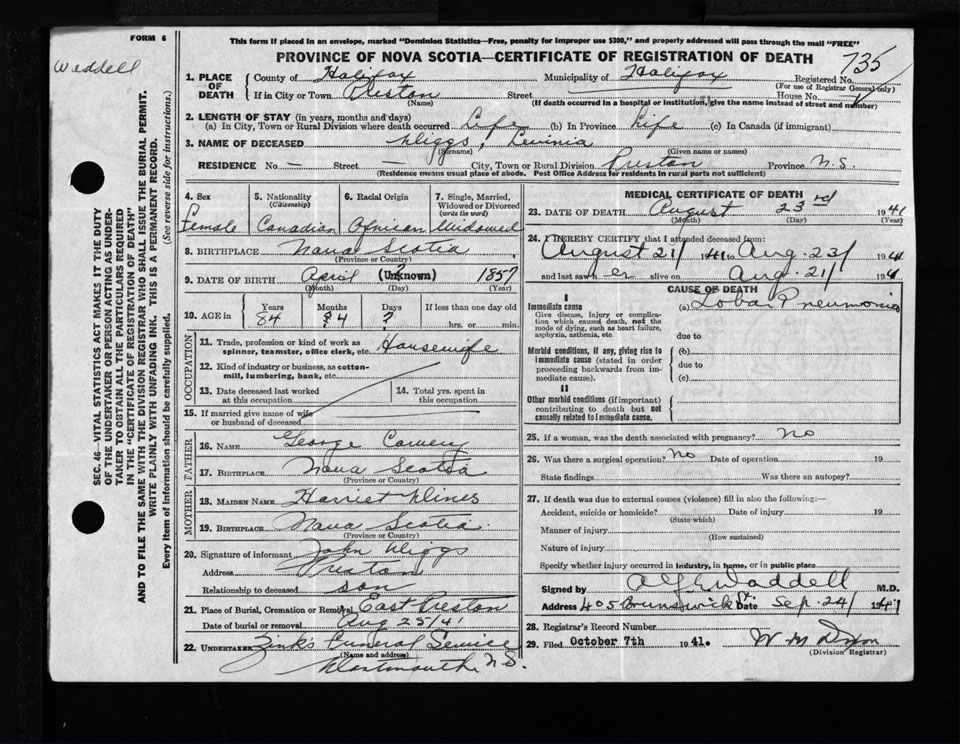 FORM 6
This form if placed in an envelope, marked "Dominion Statistics—Free, penalty for improper use $300," and properly addressed will pass through the mail "FREE"
Waddell
PROVINCE OF NOVA SCOTIA—CERTIFICATE OF REGISTRATION OF DEATH
735
1. PLACE OF DEATH
County of Halifax Municipality of Halifax Registered No.
(For use of Registrar General only)
If in City or Town Preston Street House No.
(Name) (If death occurred in a hospital or institution, give the name instead of street and number)
2. LENGTH OF STAY (in years, months and days)
(a) In City, Town or Rural Division where death occurred Life (b) In Province Life (c) In Canada (if immigrant)
3. NAME OF DECEASED Diggs, Levinia
(Surname) (Given name or names)
RESIDENCE No. — Street — City, Town or Rural Division Preston Province N.S.
(Residence means usual place of abode. Post Office Address for residents in rural parts not sufficient)
SEC. 46—VITAL STATISTICS ACT MAKES IT THE DUTY
OF THE UNDERTAKER OR PERSON ACTING AS UNDER-
TAKER TO OBTAIN ALL THE PARTICULARS REQUIRED
IN THE "CERTIFICATE OF REGISTRATION OF DEATH"
AND TO FILE THE SAME WITH THE DIVISION REGISTRAR WHO SHALL ISSUE THE BURIAL PERMIT.
WRITE PLAINLY WITH UNFADING INK. THIS IS A PERMANENT RECORD.
Every item of information should be carefully supplied. (See reverse side for instructions.)
4. Sex
Female
5. Nationality
(Citizenship)
Canadian
6. Racial Origin
African
7. Single, Married, Widowed or Divorced
(write the word)
Widowed
8. BIRTHPLACE Nova Scotia
(Province or Country)
9. DATE OF BIRTH April (Unknown) 1857
(Month) (Day) (Year)
10. AGE in Years Months Days If less than one day old
84 ? 4 ? hrs. or min.
OCCUPATION
11. Trade, profession or kind of work as
spinner, teamster, office clerk, etc. Housewife
12. Kind of industry or business, as cotton-
mill, lumbering, bank, etc.
13. Date deceased last worked
at this occupation
14. Total yrs. spent in
this occupation
15. If married give name of wife
or husband of deceased
FATHER
16. NAME George
17. BIRTHPLACE Nova Scotia
(Province or Country)
MOTHER
18. MAIDEN NAME Harriet
19. BIRTHPLACE Nova Scotia.
(Province or Country)
20. Signature of informant John Diggs
Address Preston
Relationship to deceased son
21. Place of Burial, Cremation or Removal East Preston
Date of burial or removal Aug 25/41
22. UNDERTAKER Zink's Funeral Service
(Name and address)
Dartmouth N.S.
MEDICAL CERTIFICATE OF DEATH
23. DATE OF DEATH August 23rd 1941
(Month) (Day) (Year)
24. I HEREBY CERTIFY that I attended deceased from:
August 21/ 1941 to Aug. 23/ 1941
and last saw h er alive on Aug. 21/ 1941
CAUSE OF DEATH
I
Immediate cause
Give disease, injury or complica-
tion which caused death, not the
mode of dying, such as heart failure,
asphyxia, asthenia, etc.
(a) Lobar Pneumonia
due to
Morbid conditions, if any, giving rise to
immediate cause (stated in order
proceeding backwards from im-
mediate cause).
(b)
due to
(c)
II
Other morbid conditions (if important)
contributing to death but not
causally related to immediate cause.
25. If a woman, was the death associated with pregnancy? No
26. Was there a surgical operation? No Date of operation 19
State findings Was there an autopsy?
27. If death was due to external causes (violence) fill in also the following:—
Accident, suicide or homicide? Date of injury 19
(State which)
Manner of injury
(How sustained)
Nature of injury
Specify whether injury occurred in industry, in home, or in public place
Signed by Waddell M.D.
Address 405 Brunswick St. Date Sep. 24/ 1941
28. Registrar's Record Number
29. Filed October 7th 1941. W M Dixon
(Division Registrar)